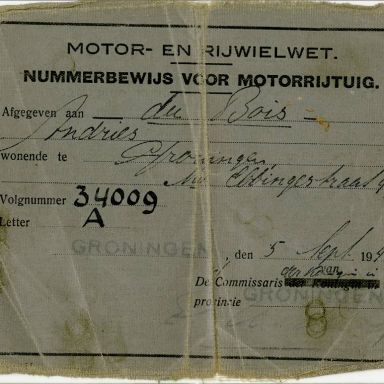 MOTOR- EN RIJWIELWET.
NUMMERBEWIJS VOOR MOTORRIJTUIG.
Afgegeven aan du Bois
Andries
wonende te Groningen,
Ebbingestraat
Volgnummer 34009
Letter A
GRONINGEN
, den 5 Sept. 194
van
De Commissaris der Koningin
provincie GRONINGEN